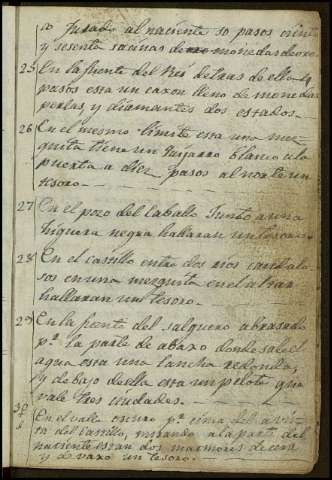 al naciente 50 pasos
y sesenta monedas de oro
25 En la fuente del Rei detras de ella 4
pasos esta un caxon lleno de monedas
perlas, y diamantes dos estados.
26 En el mesmo limite esta una mez
quita tiene un Guijarro blanco a la
puerta a diez pasos al norte un
tesoro.
27 En el pozo del Caballo Junto a una
higuera negra hallaran un tesoro
28 En el castillo entre dos rios caudalo
sos en una mezquita en el altar
hallaran un tesoro.
29 En la fuente del salguero abrasado
pr. la parte de abaxo donde sale el
agua esta una lancha redonda,
y debajo de ella esta un pelote que
vale tres ciudades.
30 En el valle oscuro pr. cima del
del Castillo, mirando a la parte del
naciente estan dos marmores de cera
y de vaxo un tesoro.